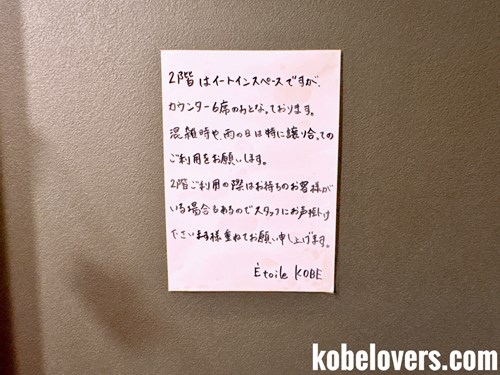 2階はイートインスペースですが、
カウンター6席のみとなっております。
混雑時や、雨の日は特に譲り合っての
ご利用をお願いします。
2階ご利用の際はお待ちのお客様が
いる場合もあるのでスタッフにお声掛け
下さいます様重ねてお願い申し上げます。
Étoile KOBE
kobelovers.com